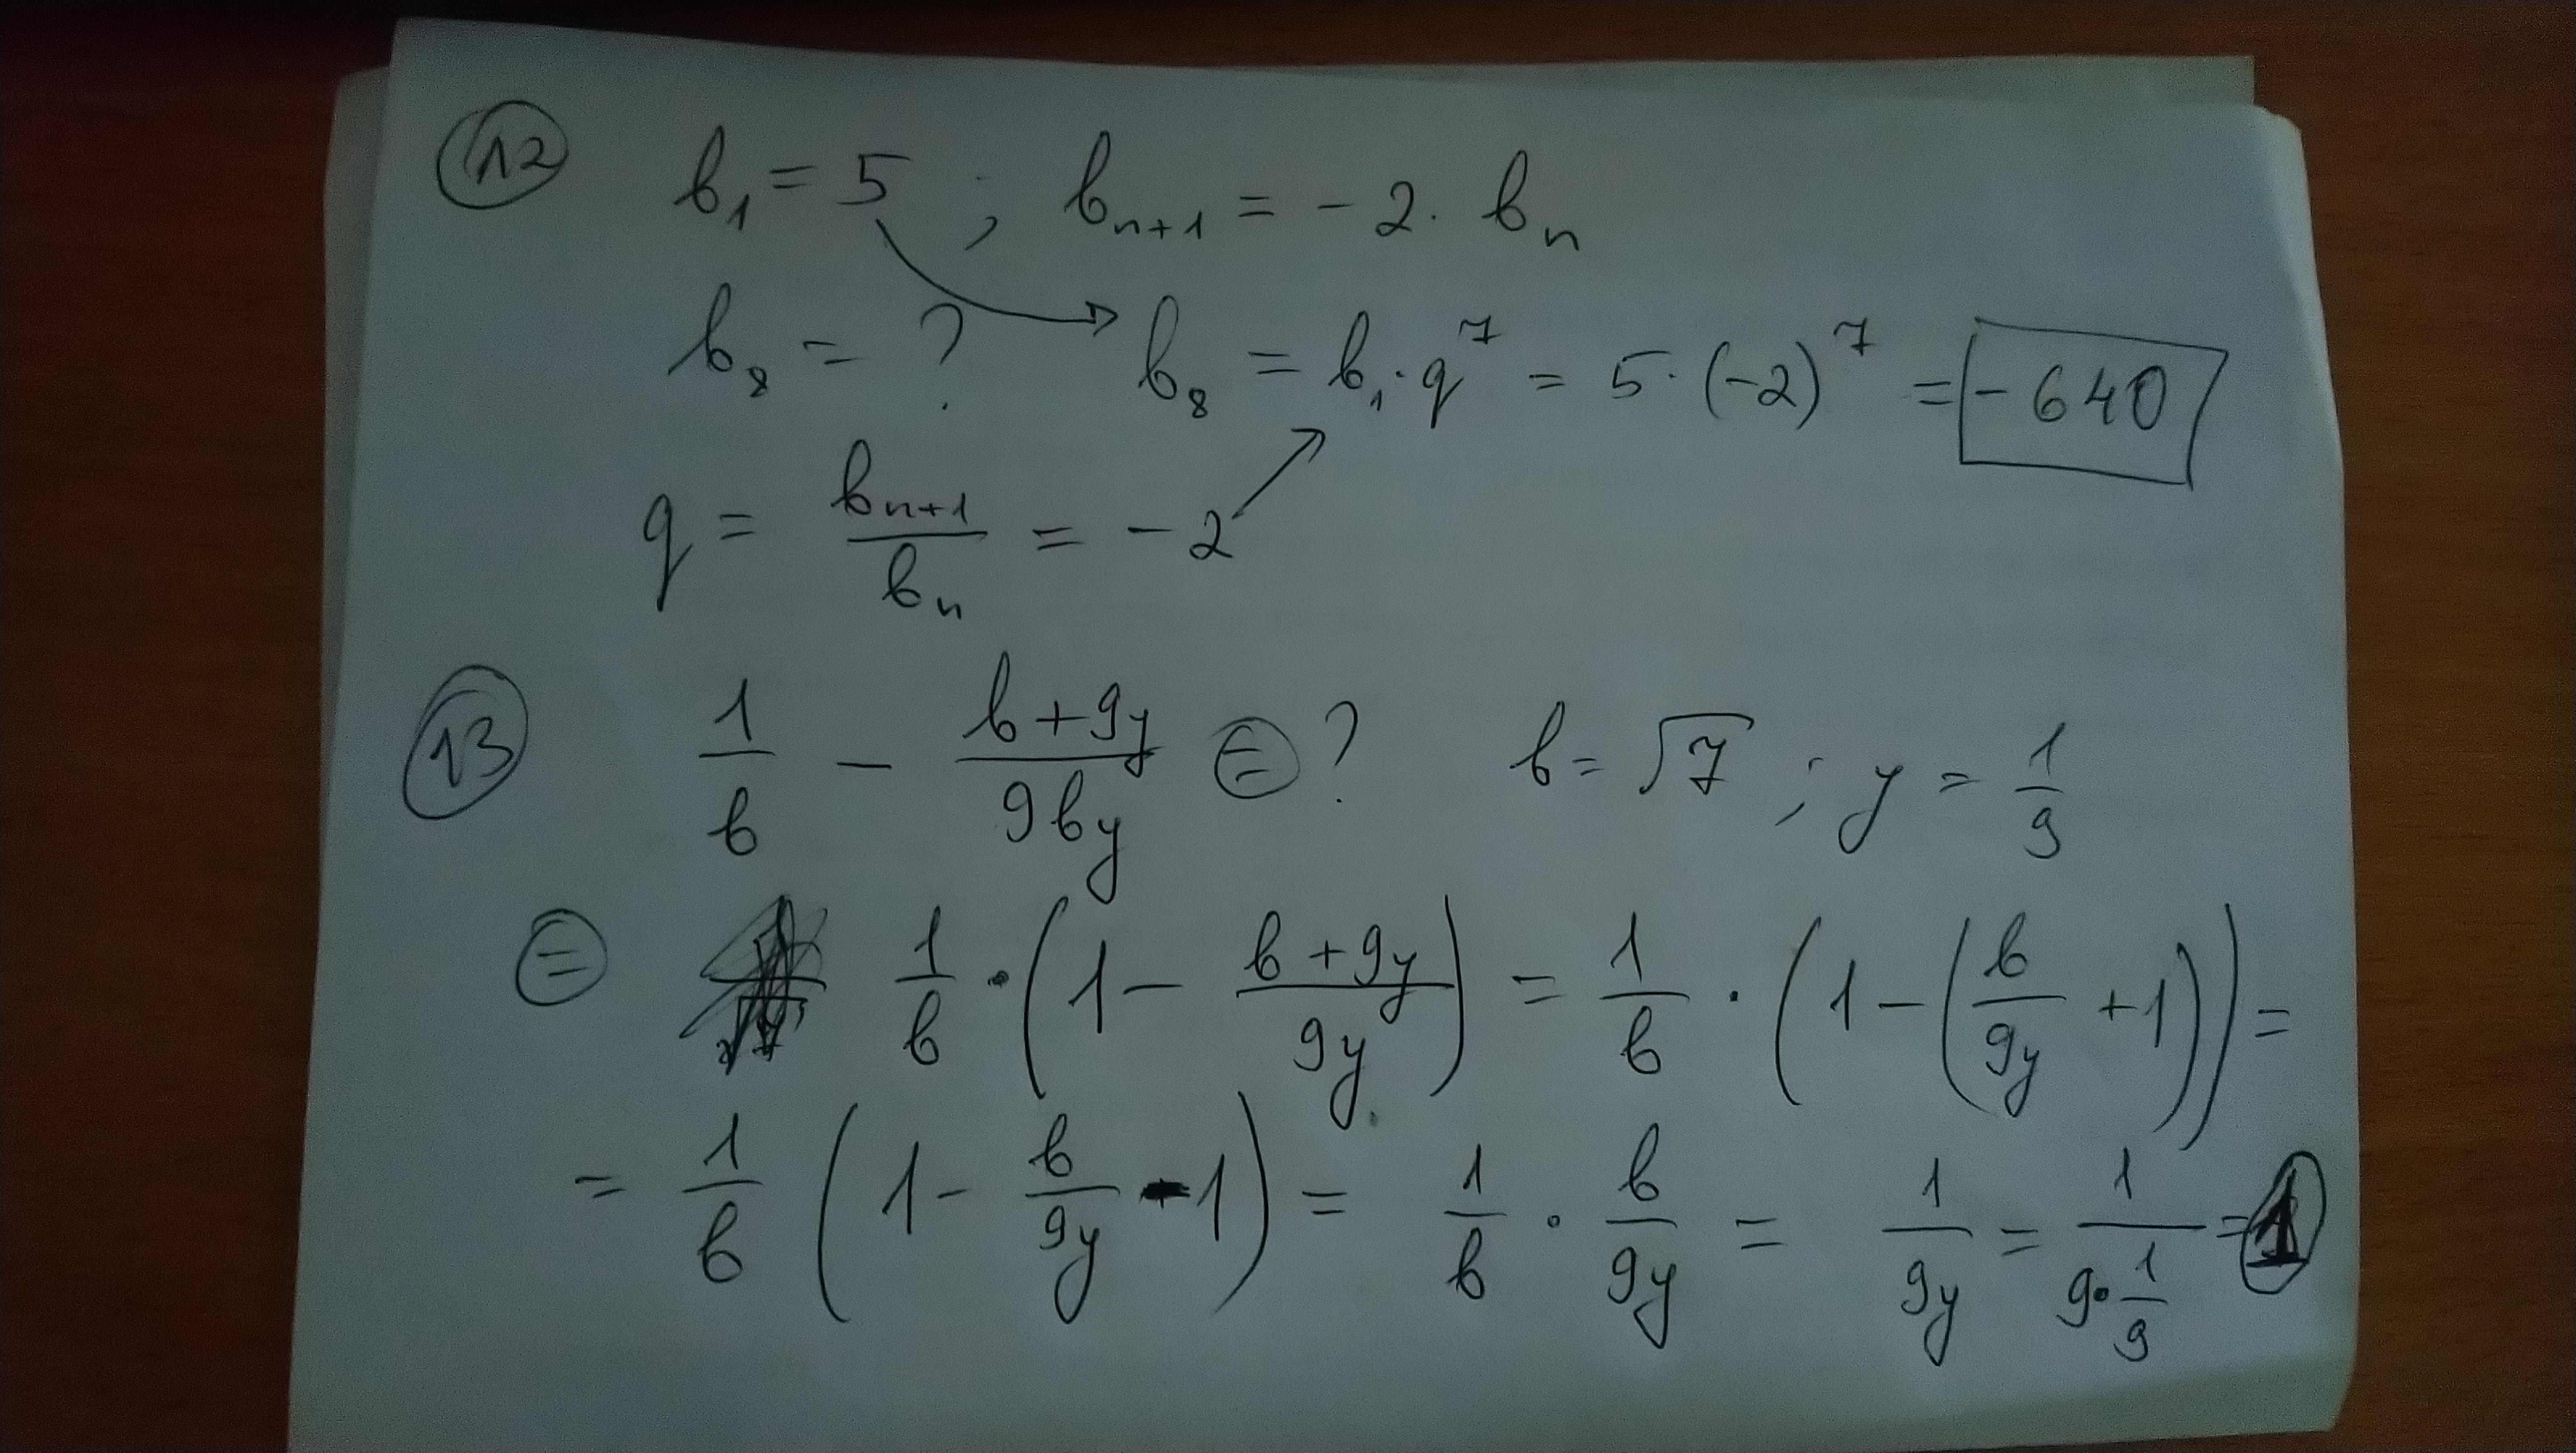 12 b₁ = 5 ; bₙ₊₁ = -2 · bₙ
b₈ = ? b₈ = b₁ · q⁷ = 5 · (-2)⁷ = -640
q = bₙ₊₁/bₙ = -2
13 1/b - (b+9y)/(9by) = ? b = √7 ; y = 1/9
= 1/b · (1 - (b+9y)/(9y)) = 1/b · (1 - (b/(9y) + 1)) =
= 1/b (1 - b/(9y) - 1) = 1/b · b/(9y) = 1/(9y) = 1/(9 · 1/9) = 1